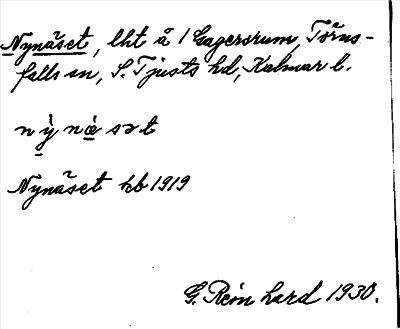 Nynäset, lht å 1 Gagersrum, Törns-
falls sn, S. Tjusts hd, Kalmar l.
nỳ nǻ sət
Nynäset kb 1919
G. Reinhard 1930.